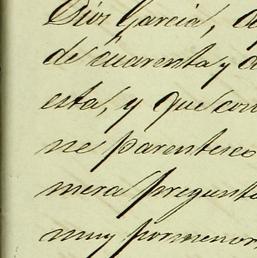 Dios Garcia, de
de cuarenta y d
esta, y que con
ne parentesco
mera pregunta
muy pormenor